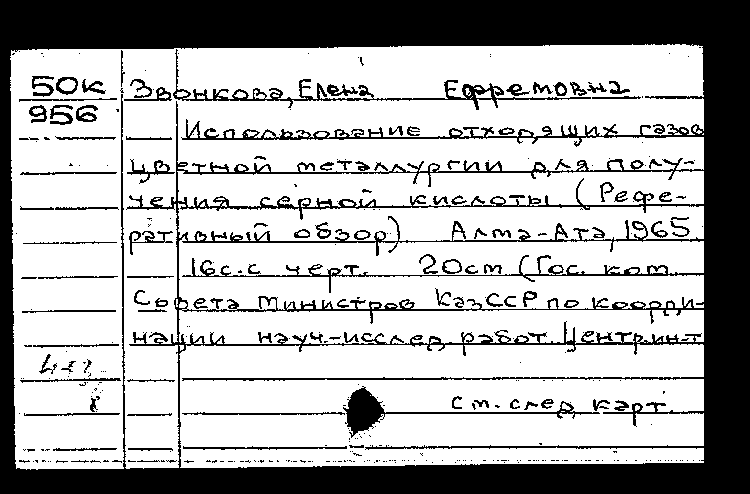 50к Звонкова, Елена Ефремовна
956
Использование отходящих газов
цветной металлургии для полу-
чения серной кислоты. (Рефе-
ративный обзор). Алма-Ата, 1965.
16с. с черт. 20см (Гос. ком.
Совета Министров КазССР по коорди-
нации науч-исслед. работ. Центр. ин-т
см. след. карт.